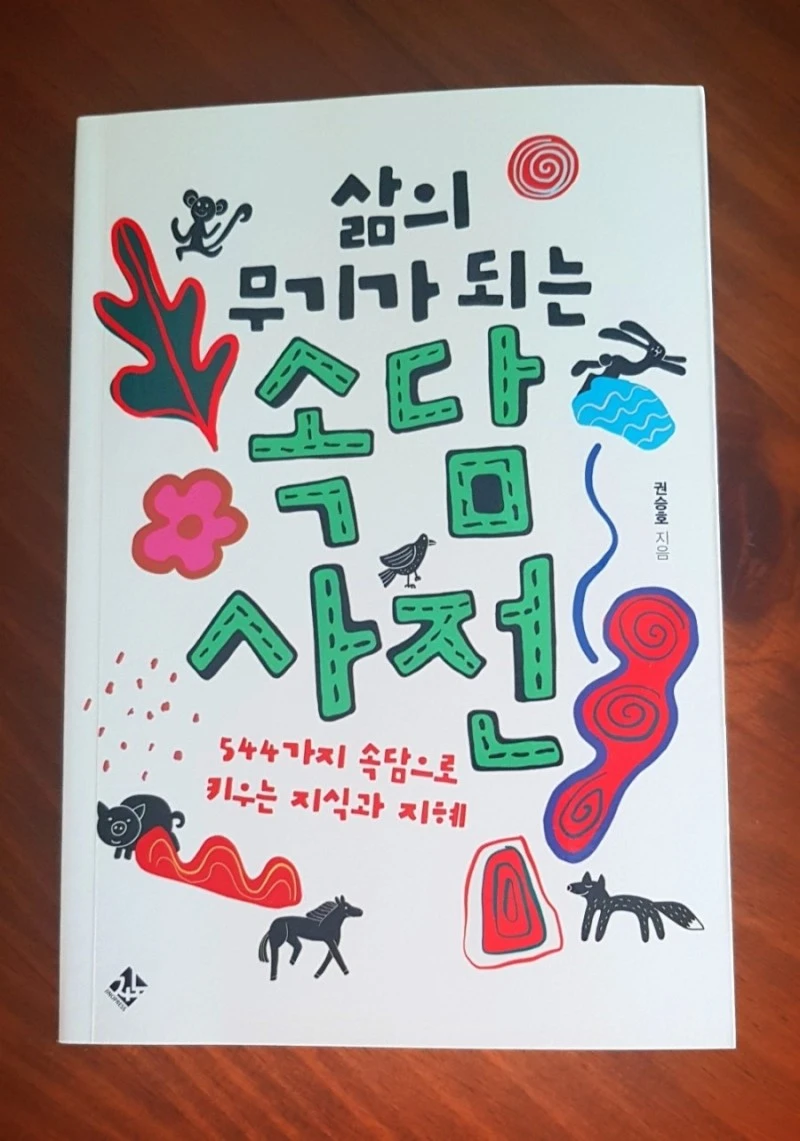 삶의
무기가 되는
속담
사전
권승호 지음
544가지 속담으로
키우는 지식과 지혜